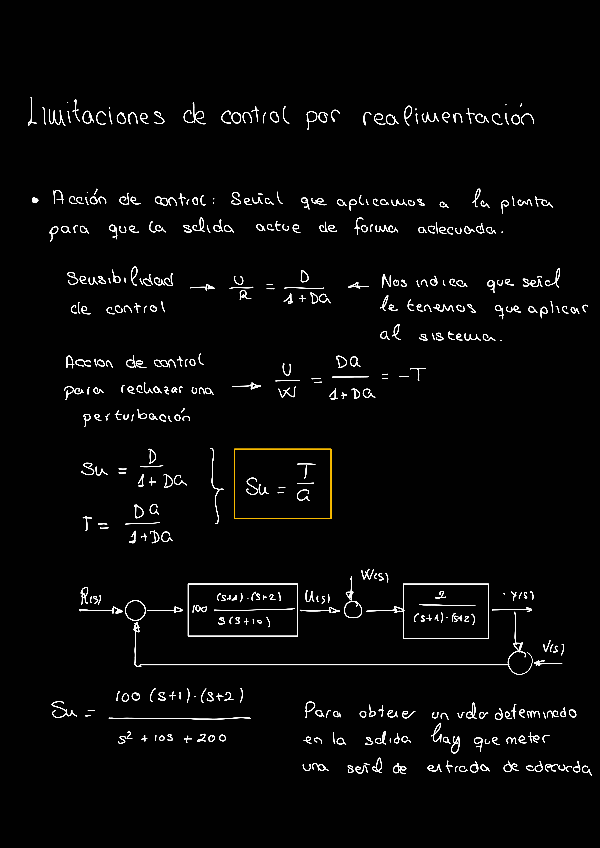 Limitaciones de control por realimentación
• Acción de control: Señal que aplicamos a la planta
para que la salida actue de forma adecuada.
Sensibilidad → U/R = D/(1+DG) ← Nos indica que señal
de control
le tenemos que aplicar
al sistema.
Accion de control
para rechazar una → U/W = DG/(1+DG) = -T
perturbación
Su = D/(1+DG)
T = DG/(1+DG)
Su = T/G
R(s)
100 (s+1)·(s+2)/s(s+10)
U(s)
W(s)
2/(s+1)·(s+2)
Y(s)
V(s)
Su = 100 (s+1)·(s+2)/(s² + 10s + 200)
Para obtener un valor determinado
en la salida hay que meter
una señal de entrada de adecuada